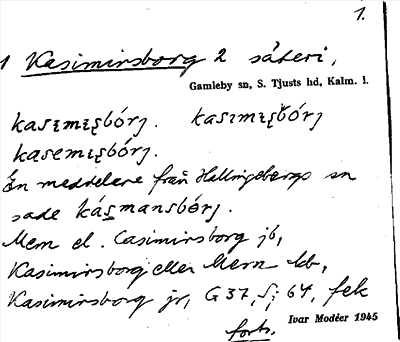 1.
1 Kasimirsborg 2 säteri,
Gamleby sn, S. Tjusts hd, Kalm. l.
kasɪmɪʂbórj. kasɪmɪʂbórj
kasemɪʂbórj.
En meddelare från Hallingebergs sn
sade kásmansbórj.
Mem el. Casimirsborg jb,
Kasimirsborg eller Mem kb,
Kasimirsborg jr, G 37, S; 64, fek
forts.
Ivar Modéer 1945